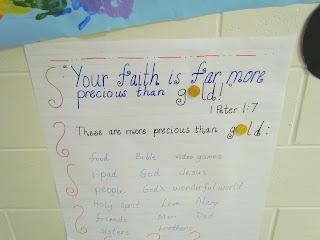 "Your faith is far more
precious than gold!"
1 Peter 1:7
These are more precious than gold:
food Bible video games
i-pad God Jesus
people God's wonderful world
Holy Spirit Love Mary
friends Mom Dad
sisters brothers